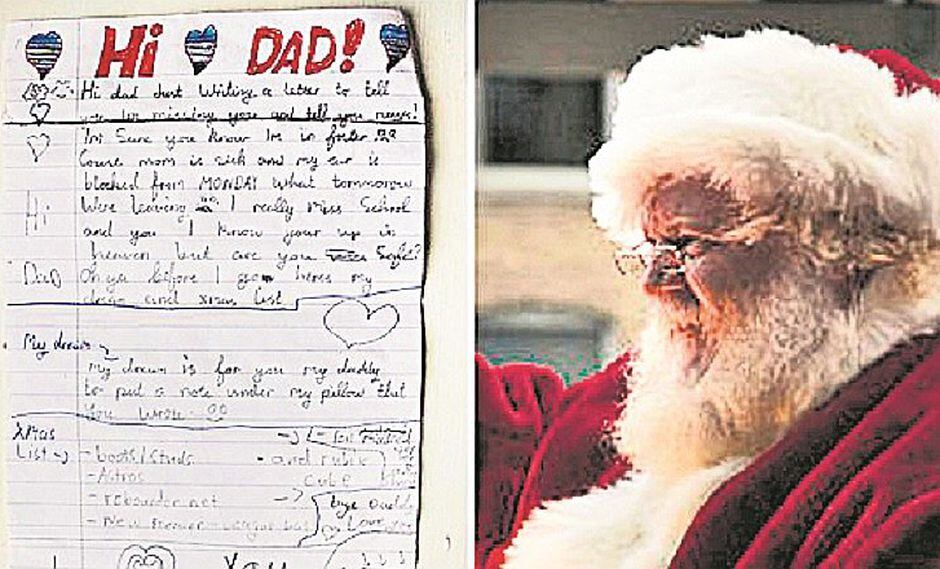 Hi DAD!
Hi dad Just Writing a letter to tell
you Im missing you and tell you news!
Im Sure you know Im in foster
Cause mom is sick and my ear is
blocked from MONDAY what tommorow
Were leaving I really miss School
Hi
and you I know your up in
heaven but are you Safe?
Dad
Oh ya before I go heres my
dream and xmas list
My dream
my dream is for you my daddy
to put a note under my pillow that
You wrote
Xmas
List
- boots/studs
- and rubix
- Astros
cube
- rebounder net
bye Daddy
- New Premier League ball
Love you
You